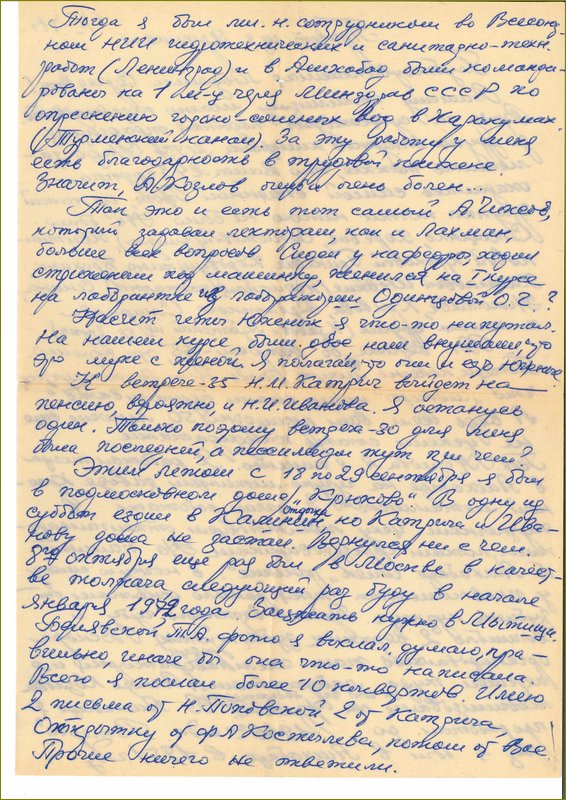 Тогда я был мл. н. сотрудником во Всесоюз-
ном НИИ гидротехнических и санитарно-техн.
работ (Ленинград) и в Ашхабад были команди-
рованы на 1 м-ц через Минздрав СССР по
опреснению горько-соленых вод в Каракумах
(Туркменский канал). За эту работу у меня
есть благодарность в трудовой книжке.
Значит, А. Козлов очень и очень болен...
Так это и есть тот самый А. Чижов,
который задавал лекторам, как и Лахман,
больше всех вопросов. Сидел у кафедры, ходил
стриженым под машинку, женился на I курсе
на лаборантке из лаборатории Одинцовой О.Г.?
Насчет четы Юхения я что-то напутал.
На нашем курсе были двое нам внушали, что
это муж с женой. Я полагал, что они и есть
К встрече-35 Н.И. Катрич выйдет на
пенсию, вероятно, и Н.И. Иванова. Я останусь
один. Только поэтому встреча-30 для меня
была последней, а пессимизм тут при чем?
Этим летом с 18 по 29 сентября я был
в подмосковном доме отдыха "Крюково". В одну из
суббот ездил в Калинин, но Катрича и Ива-
нову дома не застал. Вернулся ни с чем.
8го октября еще раз был в Москве в качест-
ве толкача следующий раз буду в начале
января 1972 года. Заезжать нужно в Мытищи.
Т.А. фото я выслал, думаю, пра-
вильно, иначе бы она что-то написала.
Всего я послал более 10 конвертов. Имею
2 письма от Н. Поповской, 2 от Катрича,
Открытку от Ф А Костылева, потом от Вас
Прочие ничего не ответили.